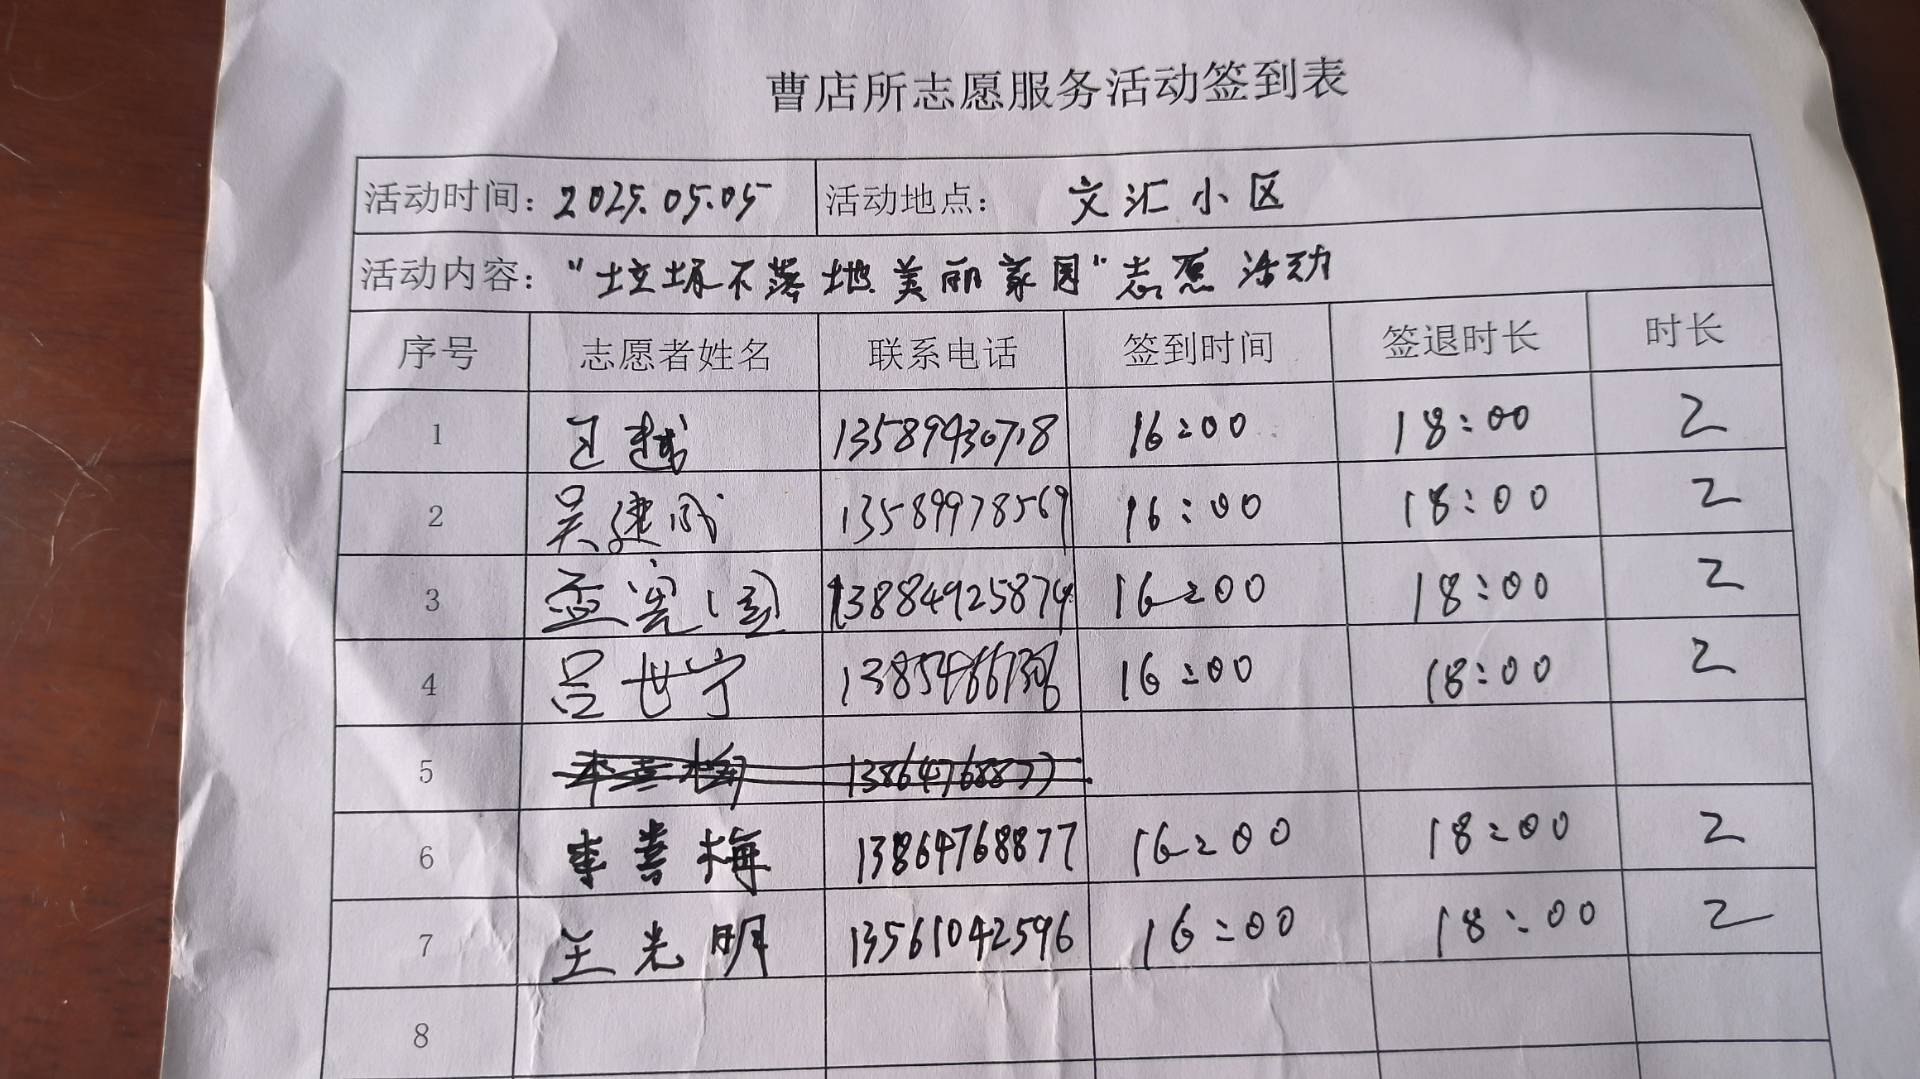 曹店所志愿服务活动签到表
活动时间：2025.05.05 活动地点： 文汇小区
活动内容：“垃圾不落地美丽家园”志愿活动
序号 志愿者姓名 联系电话 签到时间 签退时长 时长
1 王越 13589430718 16:00 18:00 2
2 吴建成 13589978569 16:00 18:00 2
3 孟宪国 13884925874 16:00 18:00 2
4 吕世宁 16:00 18:00 2
5 13864768877
6 李善梅 13864768877 16:00 18:00 2
7 王光明 13561042596 16:00 18:00 2
8